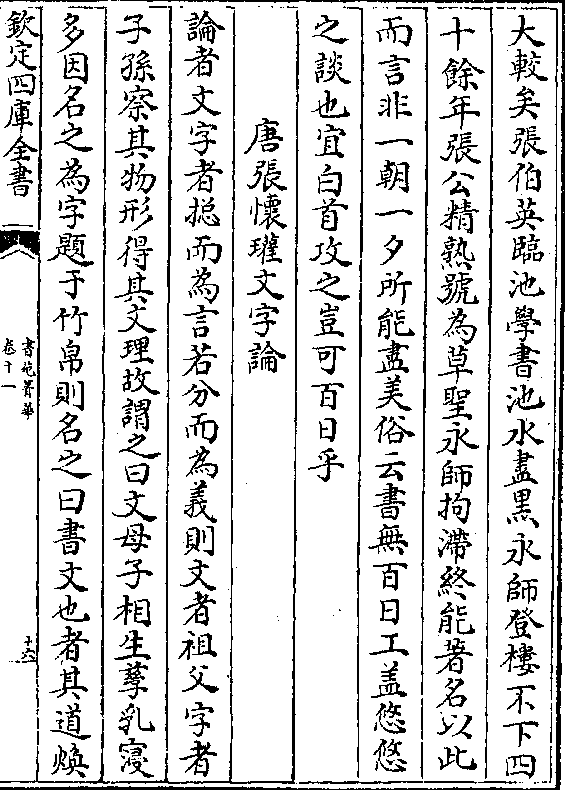 大較矣張伯英臨池學書池水盡黒永師登樓不下四
十餘年張公精熟號為草聖永師拘滯終能著名以此
而言非一朝一夕所能盡美俗云書無百日工盖悠悠
之談也宜白首攻之豈可百日乎
唐張懷瓘文字論
論者文字者捴而為言若分而為義則文者祖父字者
子孫察其物形得其文理故謂之曰文母子相生孳乳寖
多因名之為字題于竹帛則名之曰書文也者其道煥
欽定四庫全書
書苑菁華
卷十一
十六